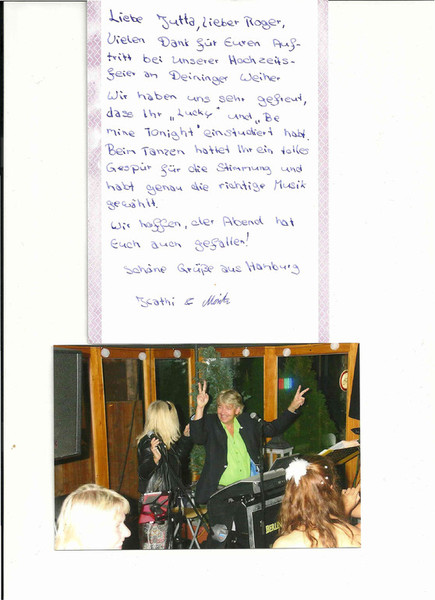 Liebe Jutta, Lieber Roger,
Vielen Dank für Euren Auf-
tritt bei unserer Hochzeits-
feier am Deininger Weiher
Wir haben uns sehr gefreut,
dass Ihr „Lucky" und „Be
mine Tonight" einstudiert habt.
Beim Tanzen hattet Ihr ein tolles
Gespür für die Stimmung und
habt genau die richtige Musik
gewählt.
Wir hoffen, der Abend hat
Euch auch gefallen!
Schöne Grüße aus Hamburg
Kathi &